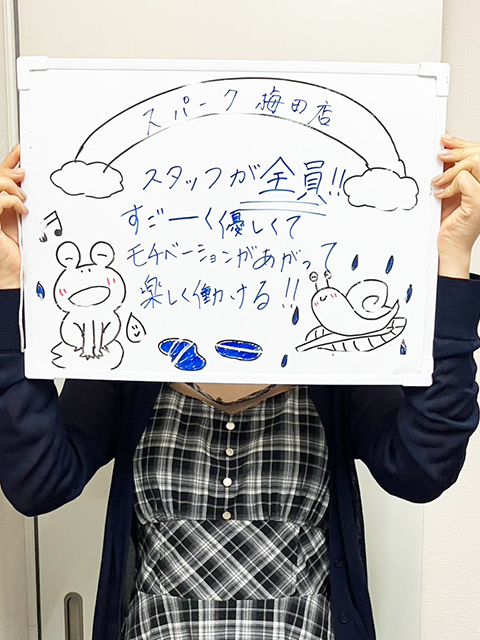 スパーク 梅田店
スタッフが全員!!
すごーく優しくて
モチベーションがあがって
楽しく働ける!!